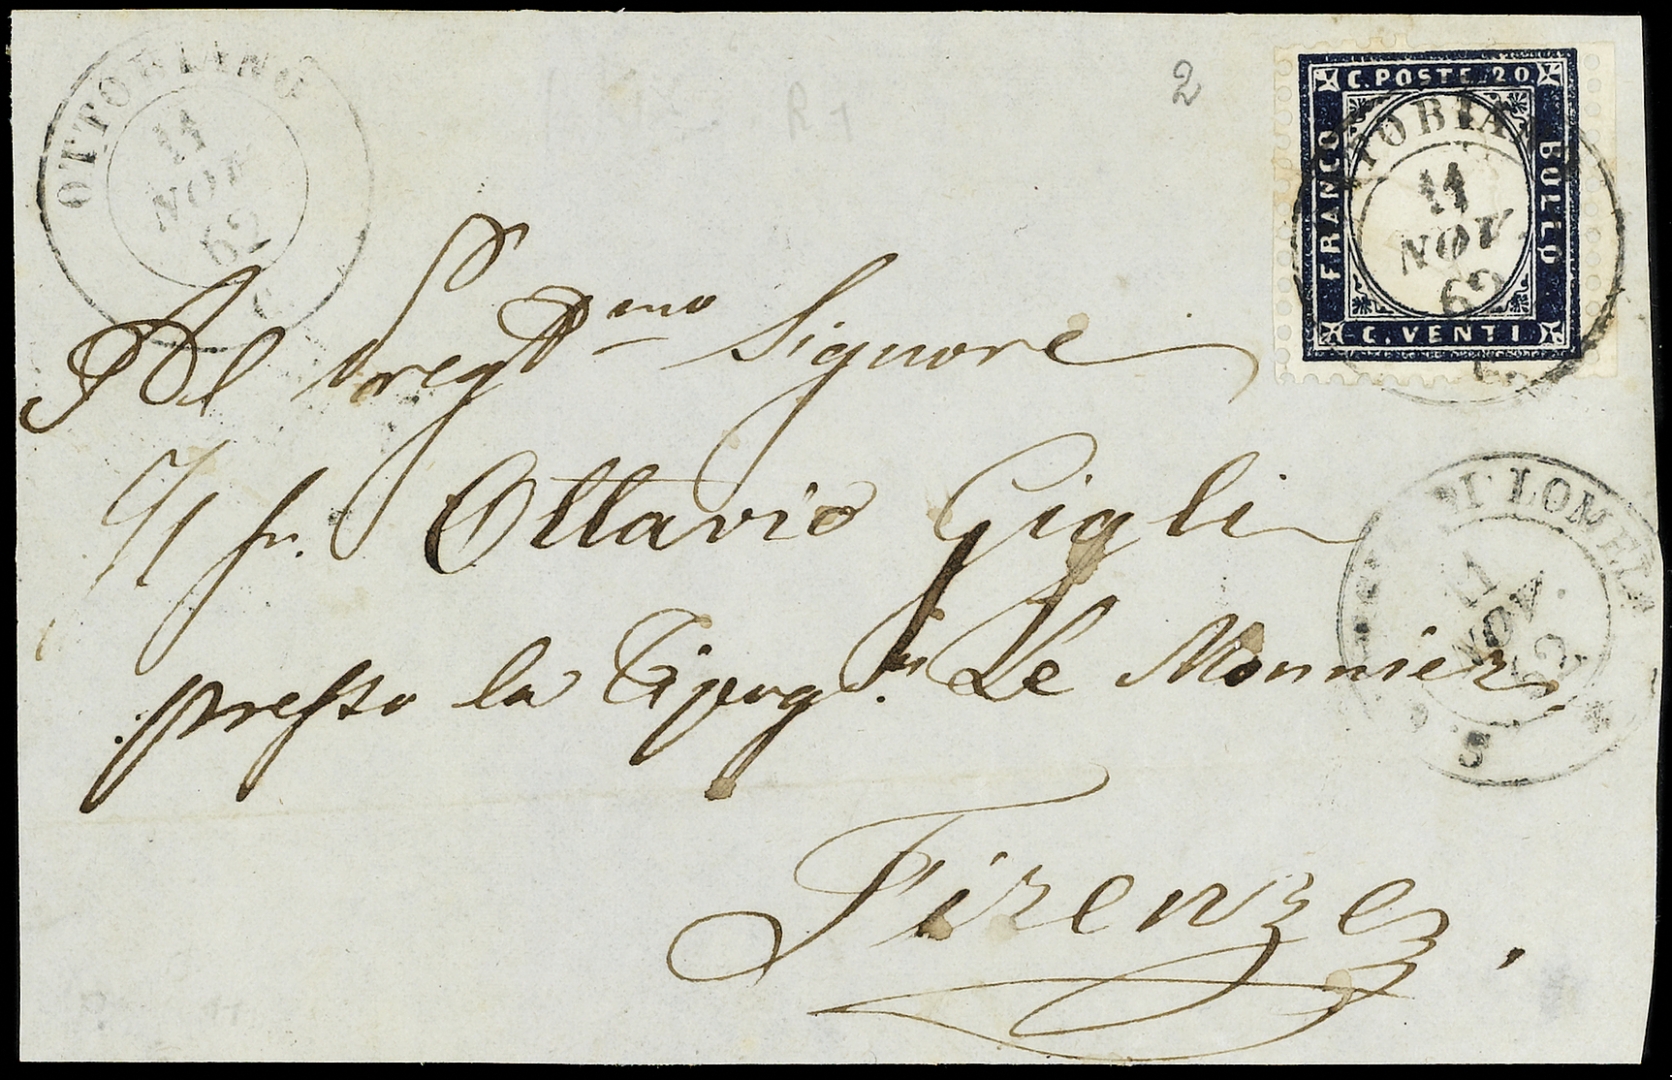 OTTOBIANO
11
NOV
62
C.
2
R 7
C. POSTE 20
FRANCO
BOLLO
C. VENTI
11
NOV
62
Al Preg.mo Signore
Ottavio Gigli
presso la Tipog.a Le Monnier
Firenze.
DI LOMELL
11
NOV.
62
S